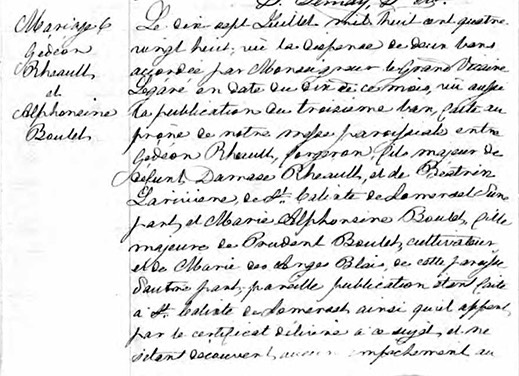 Mariage
Gédéon
Rheault
et
Alphonsine
Boulet
Le dix sept Juillet mil huit cent quatre
vingt huit, vu la dispense de deux bans
accordée par Monseigneur le Grand Vicaire
Légaré en date du dix de ce mois, vu aussi
la publication du troisième ban, faite au
prône de notre messe paroissiale entre
Gédéon Rheault, forgeron, fils majeur de
défunt Damase Rheault, et de Béatrix
Larivière, de St. Calixte de Somerset d'une
part, et Marie Alphonsine Boulet, fille
majeure de Prudent Boulet, cultivateur
et de Marie des Anges Blais, de cette paroisse
d'autre part; pareille publication étant faite
à St. Calixte de Somerset ainsi qu'il appert
par le certificat délivré à ce sujet, et ne
s'étant découvert aucun empêchement au